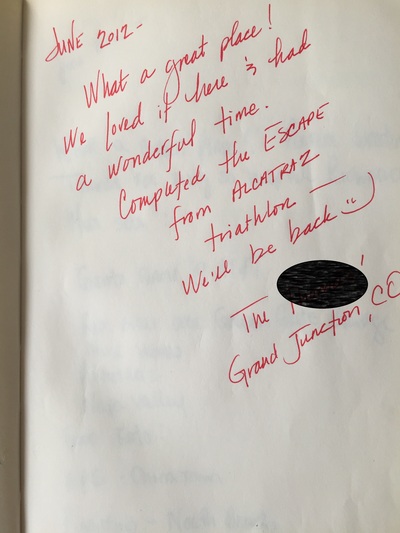 JUNE 2012-
What a great place!
We loved it here & had
a wonderful time.
Completed the ESCAPE
from ALCATRAZ
triathlon —
We'll be back
The
Grand Junction, CO